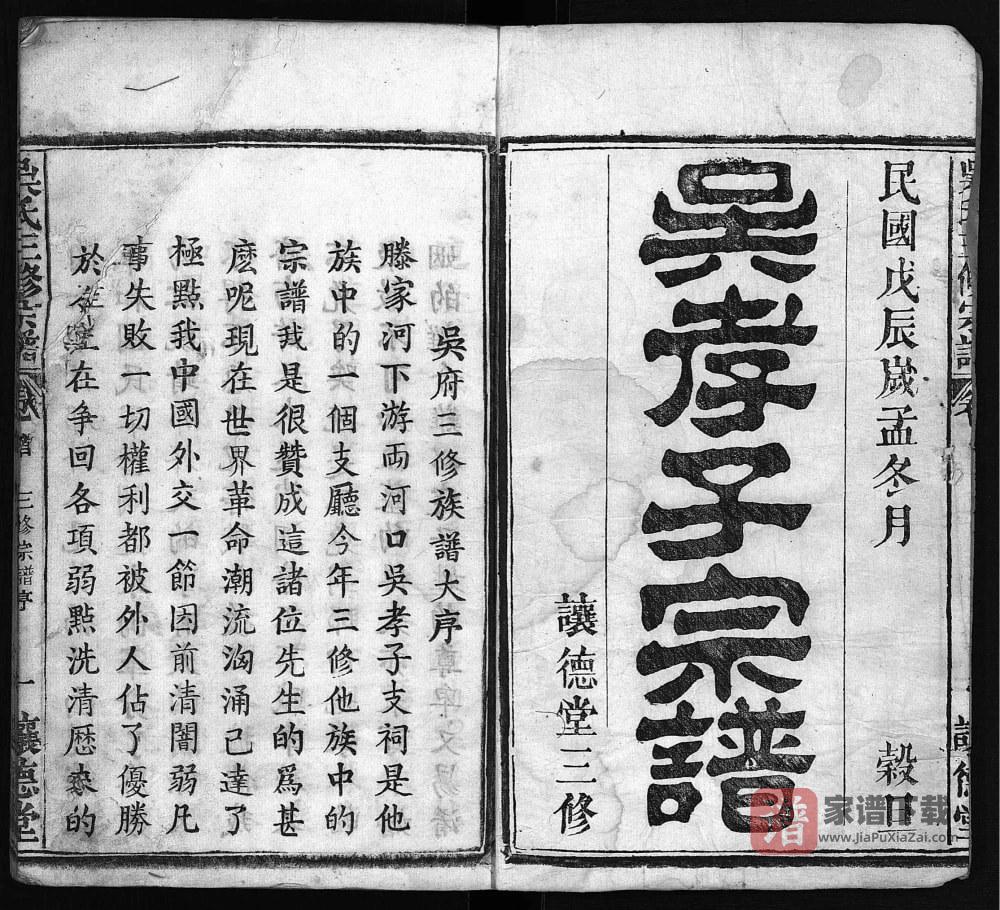 民國戊辰歲孟冬月 穀日
吳孝子宗譜
讓德堂三修
吳府三修族譜大序
滕家河下游両河口吳孝子支祠是他
族中的一個支廳今年三修他族中的
宗譜我是很贊成這諸位先生的爲甚
麽呢現在世界革命潮流洶涌已達了
極點我中國外交一節因前清闇弱凡
事失敗一切權利都被外人佔了優勝
於在爭回各項弱點洗清歷来的
吳氏三修宗譜
三修宗譜序
一
讓德堂
家谱下载
www.JiaPuXiaZai.com
谱